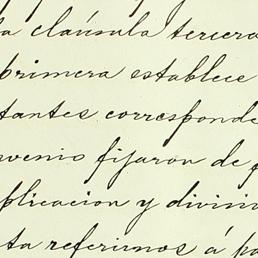 la claúsula tercera
primera establece
tantes corresponde
venio fijaron de
plicacion y divisi
ta referimos á pa